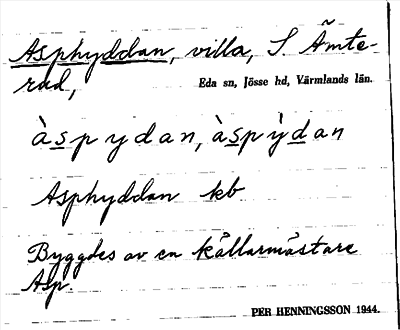 Asphyddan, villa, S. Ämte-
rud,
Eda sn, Jösse hd, Värmlands län.
àspydan, àspỳdan
Asphyddan kb
Byggdes av en källarmästare
Asp.
PER HENNINGSSON 1944.